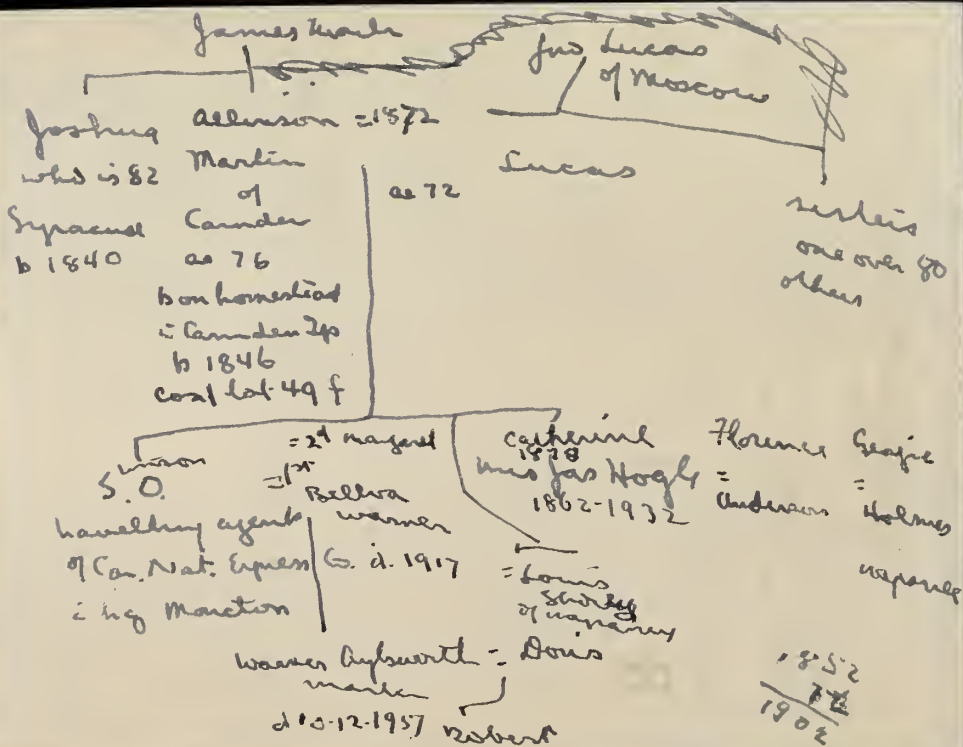 James
Jno Lucas
of Moscow
Joshua
who is 82
Syracuse
b 1840
Allinson = 1872
Martin
of
Camden
ae 76
b on homestead
in Camden Tp
b 1846
lot 49 f
ae 72
Lucas
sisters
one over 80
others
S. O.
travelling agent
of Can. Nat. Express Co.
Moncton
= 2d Margaret
= 1st
Bellva
Warner
d. 1917
Catherine
1878
Mrs Jas Hogle
1862-1932
Florence
=
Anderson
Georgie
=
Holmes
Napanee
= Louis
Shorey
of Napanee
Warner Aylsworth = Doris
d 10-12-1957
Robert
1852
72
1902